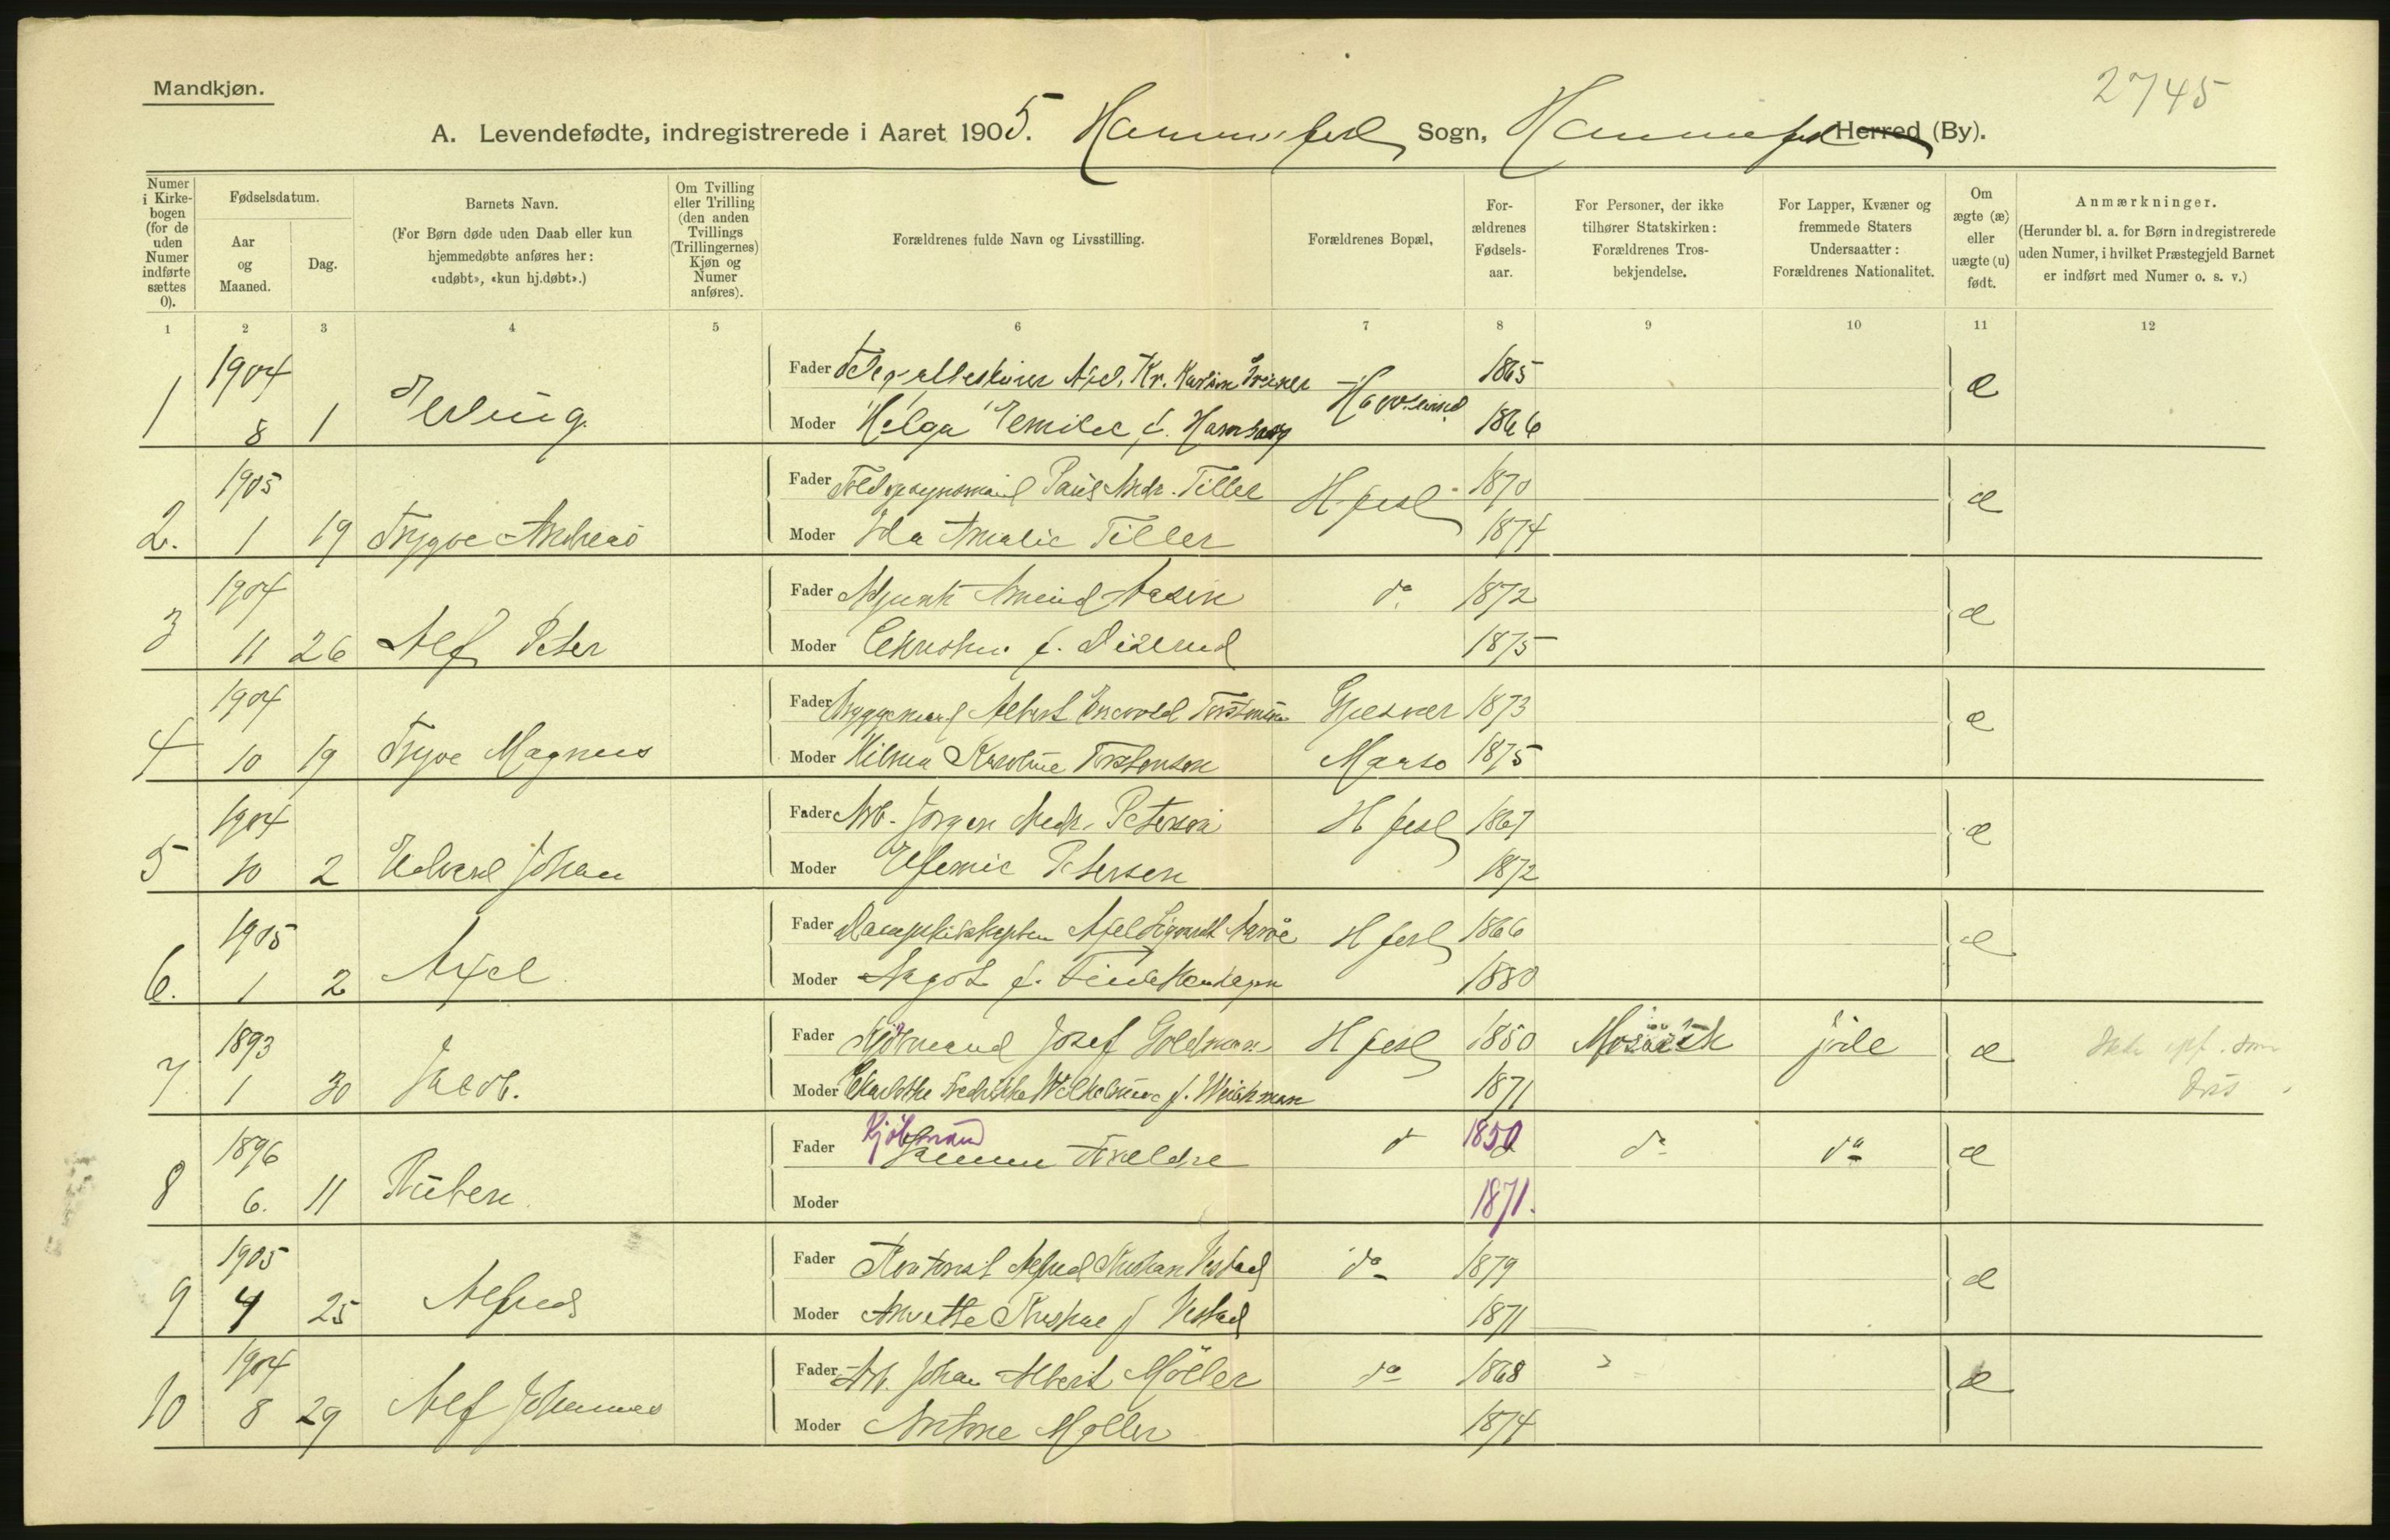 Mandkjøn.
2745
A. Levendefødte, indregistrerede i Aaret 1905. Hammerfest Sogn, Hammerfest Herred (By).
Numer i Kirkebogen (for de uden Numer indførte sættes 0).
Fødselsdatum.
Aar og Maaned.
Dag.
Barnets Navn.
(For Børn døde uden Daab eller kun hjemmedøbte anføres her: «udøbt», «kun hj.døbt».)
Om Tvilling eller Trilling (den anden Tvillings (Trillingernes) Kjøn og Numer anføres).
Forældrenes fulde Navn og Livsstilling.
Forældrenes Bopæl,
Forældrenes Fødselsaar.
For Personer, der ikke tilhører Statskirken: Forældrenes Trosbekjendelse.
For Lapper, Kvæner og fremmede Staters Undersaatter: Forældrenes Nationalitet.
Om ægte (æ) eller uægte (u) født.
Anmærkninger.
(Herunder bl. a. for Børn indregistrerede uden Numer, i hvilket Præstegjeld Barnet er indført med Numer o. s. v.)
1 2 3 4 5 6 7 8 9 10 11 12
1 1904 8 1 Erling.
Fader Axel Kr. 1865 æ
Moder Helga Emilie f. 1866
2. 1905 1 19 Trygve Andreas
Fader Paul Andr. Tiller H.fest 1870 æ
Moder Ida Amalie Tiller 1874
3 1904 11 26 Alf Peter
Fader Adjunkt Aasen do 1872 æ
Moder f. 1875
4 1904 10 19 Trygve Magnus
Fader Albert Gjesvær 1873 æ
Moder Hilma Karoline Torstensen Maasø 1875
5 1904 10 2 Edvard Johan
Fader Arb. Jørgen Andr. Petersen H fest 1867 æ
Moder Efemie Petersen 1872
6. 1905 1 2 Axel
Fader Dampskibskaptein Axel H fest 1866 æ
Moder Aagot f. 1880
7 1893 1 30 Jacob.
Fader Kjøbmand Josef Goldman H fest 1850 Mosaisk jøde æ
Moder Fredrikke Wilhelmine f. 1871
8 1896 6. 11 Ruben
Fader Kjøbmand Samme Forældre do 1850 do do æ
Moder 1871.
9 1905 4 25 Alfred
Fader Kontorist Alfred Vestad do 1879 æ
Moder Anette f Vestad 1871
10 1904 8 29 Alf Johannes
Fader Arb. Johan Albert Möller do 1868 æ
Moder Antone Møller 1874